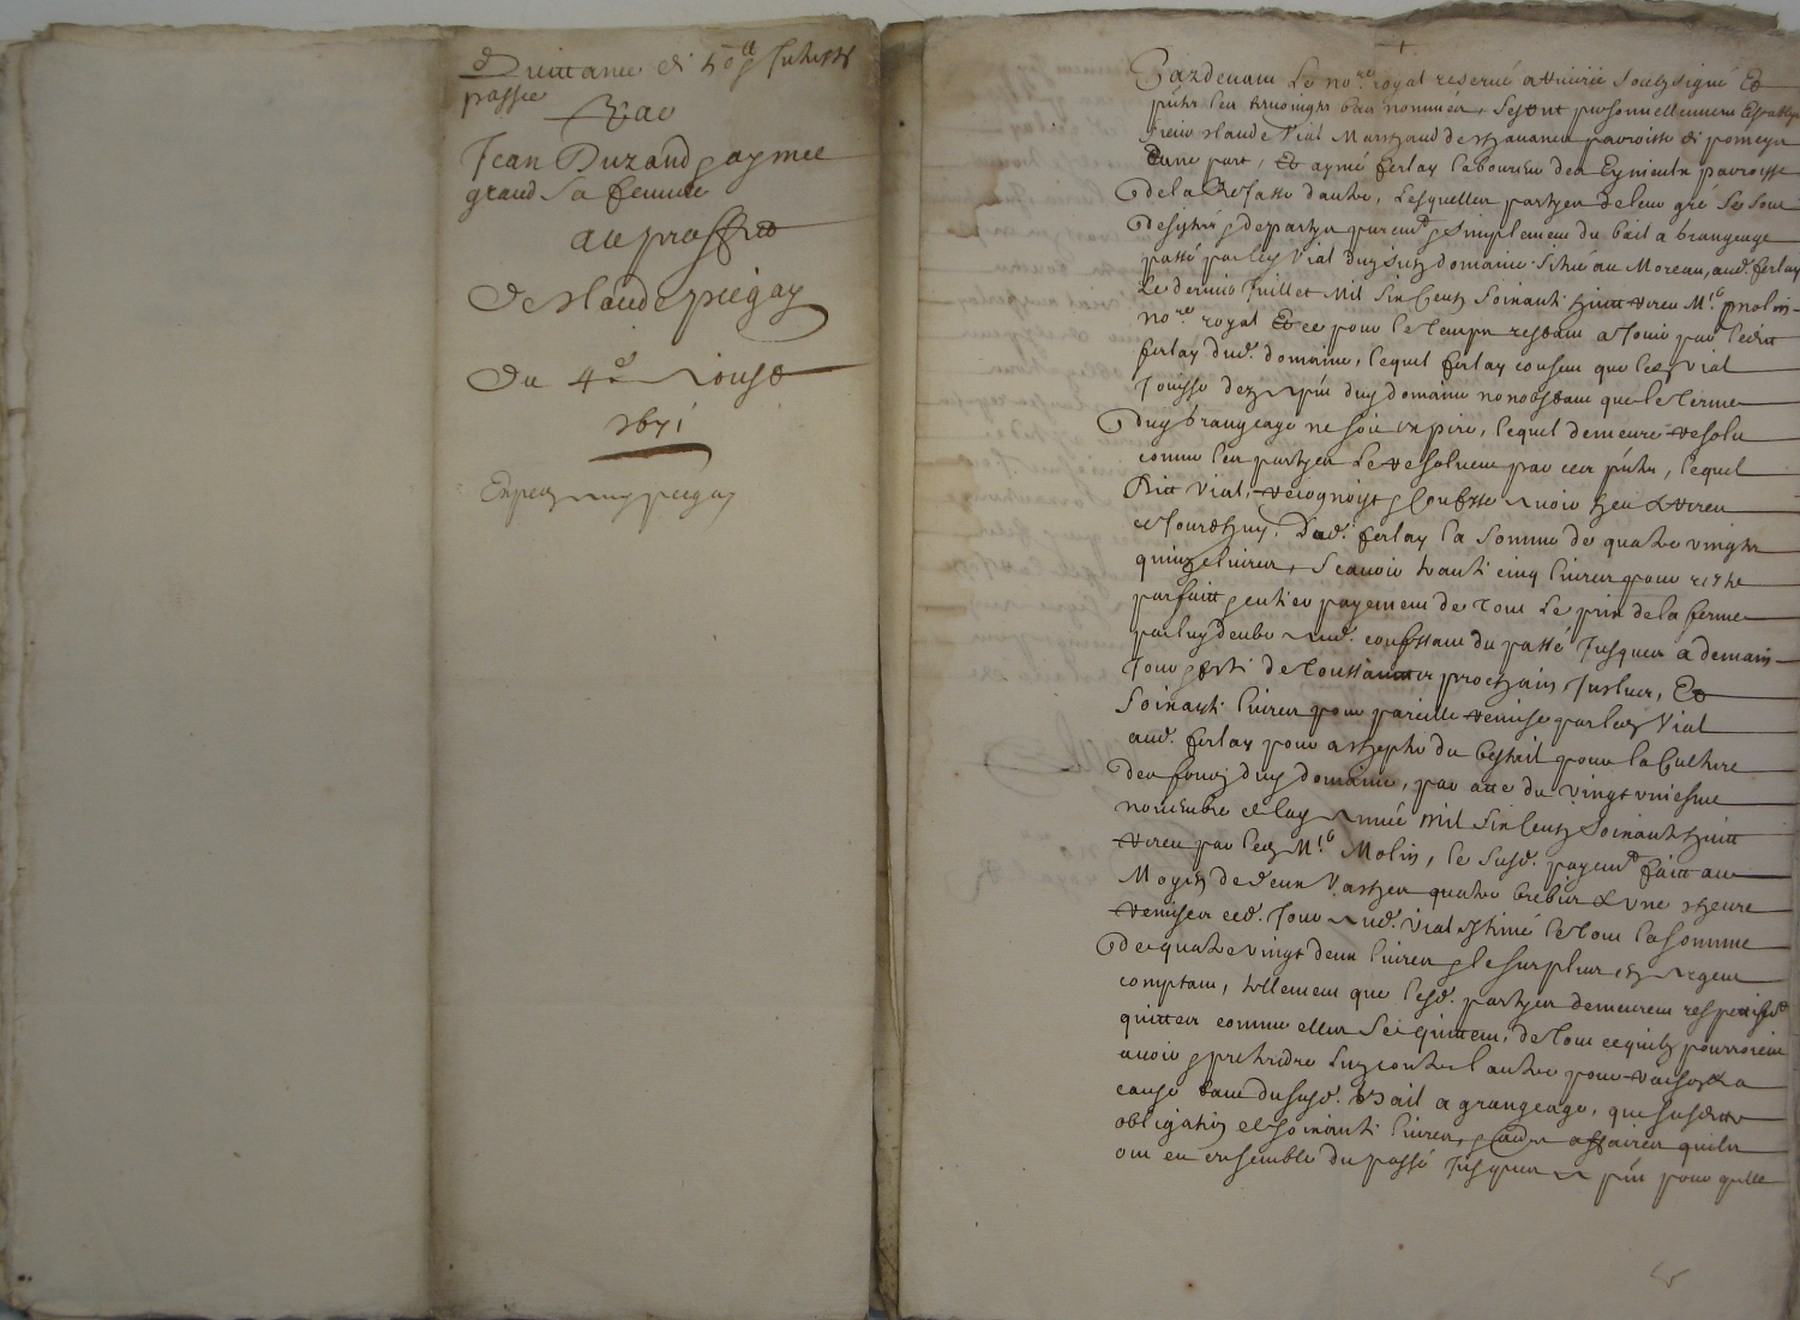 Quittance de 50ll
passée
Par
Jean Durand & aymee
grand sa femme
au proffit
De Claude piegay
Du 4e Aoust
1671
Expedié audit piegay
Pardevant Le nore royal reservé a soubzsigné Et
pnts les tesmoingts bas nommés, se sont personnellement Establys
sieur Claude Vial Marchand de Chavanes parroisse de pomeys
d'une part, Et aymé ferlay laboureur des parroisse
de la d'autre, Lesquelles partyes de leur gré se sont
desistées & departyes puremt & simplement du bail a grangeage
passé par ledt Vial du domaine situé au Moreau, aud. ferlay
Le dernier Juillet Mil six centz soixante huict receu Me molin
nore royal Et ce pour le temps restant a Jouir par ledict
ferlay dud. domaine, lequel ferlay consent que ledt Vial
Jouisse dez a pnt dud domaine nonobstant que le terme
dud grangeage ne soit expiré, lequel demeure resolu
comme les partyes Le resolvent par ces pntes, lequel
dict Vial, recognoist & confesse avoir heu & receu
cejourdhuy, dud. ferlay la somme de quatre vingts
quinze livres, scavoir trante cinq livres pour reste
parfaict & entier payement de tout Le prix de la ferme
par luy deube aud. confessant du passé Jusques a demain
Jour & feste de toussaincts prochain Inclus, Et
soixante livres pour pareille remise par ledt Vial
aud. ferlay pour achepter du bestail pour la Culture
des fondz dud domaine, par acte du vingt uniesme
novembre de lad année Mil six centz soixante huict
receu par led Me Molin, le susd. payemt faict au
Moyen de deux vaches quatre brebis & une chevre
remises ced. Jour aud. Vial estimé le tout la somme
de quatre vingt deux livres & le surplus en argent
comptant, tellement que lesd. partyes demeurent respectivt
quittes comme elles se quittent, de tout ce quils pourroient
avoir & pretendre l'un contre l'autre pour raison & a
cause tant du susd. Bail a grangeage, que susdicte
obligation de soixante livres, & affaires quils
ont eu ensemble du passé Jusques a pnt pour quelle